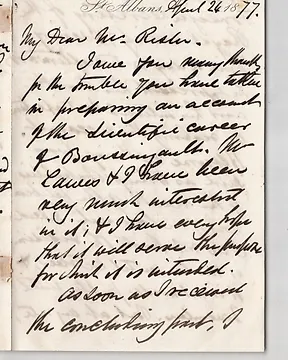 St. Albans, April 24 1877.
My Dear Mr. Risler.
I owe you many thanks
for the trouble you have taken
in preparing an account
of the scientific career
of Boussingault. Mr
Lawes & I have been
very much interested
in it; & I have every hope
that it will serve the purpose
for which it is intended.
As soon as I received
the concluding part, I